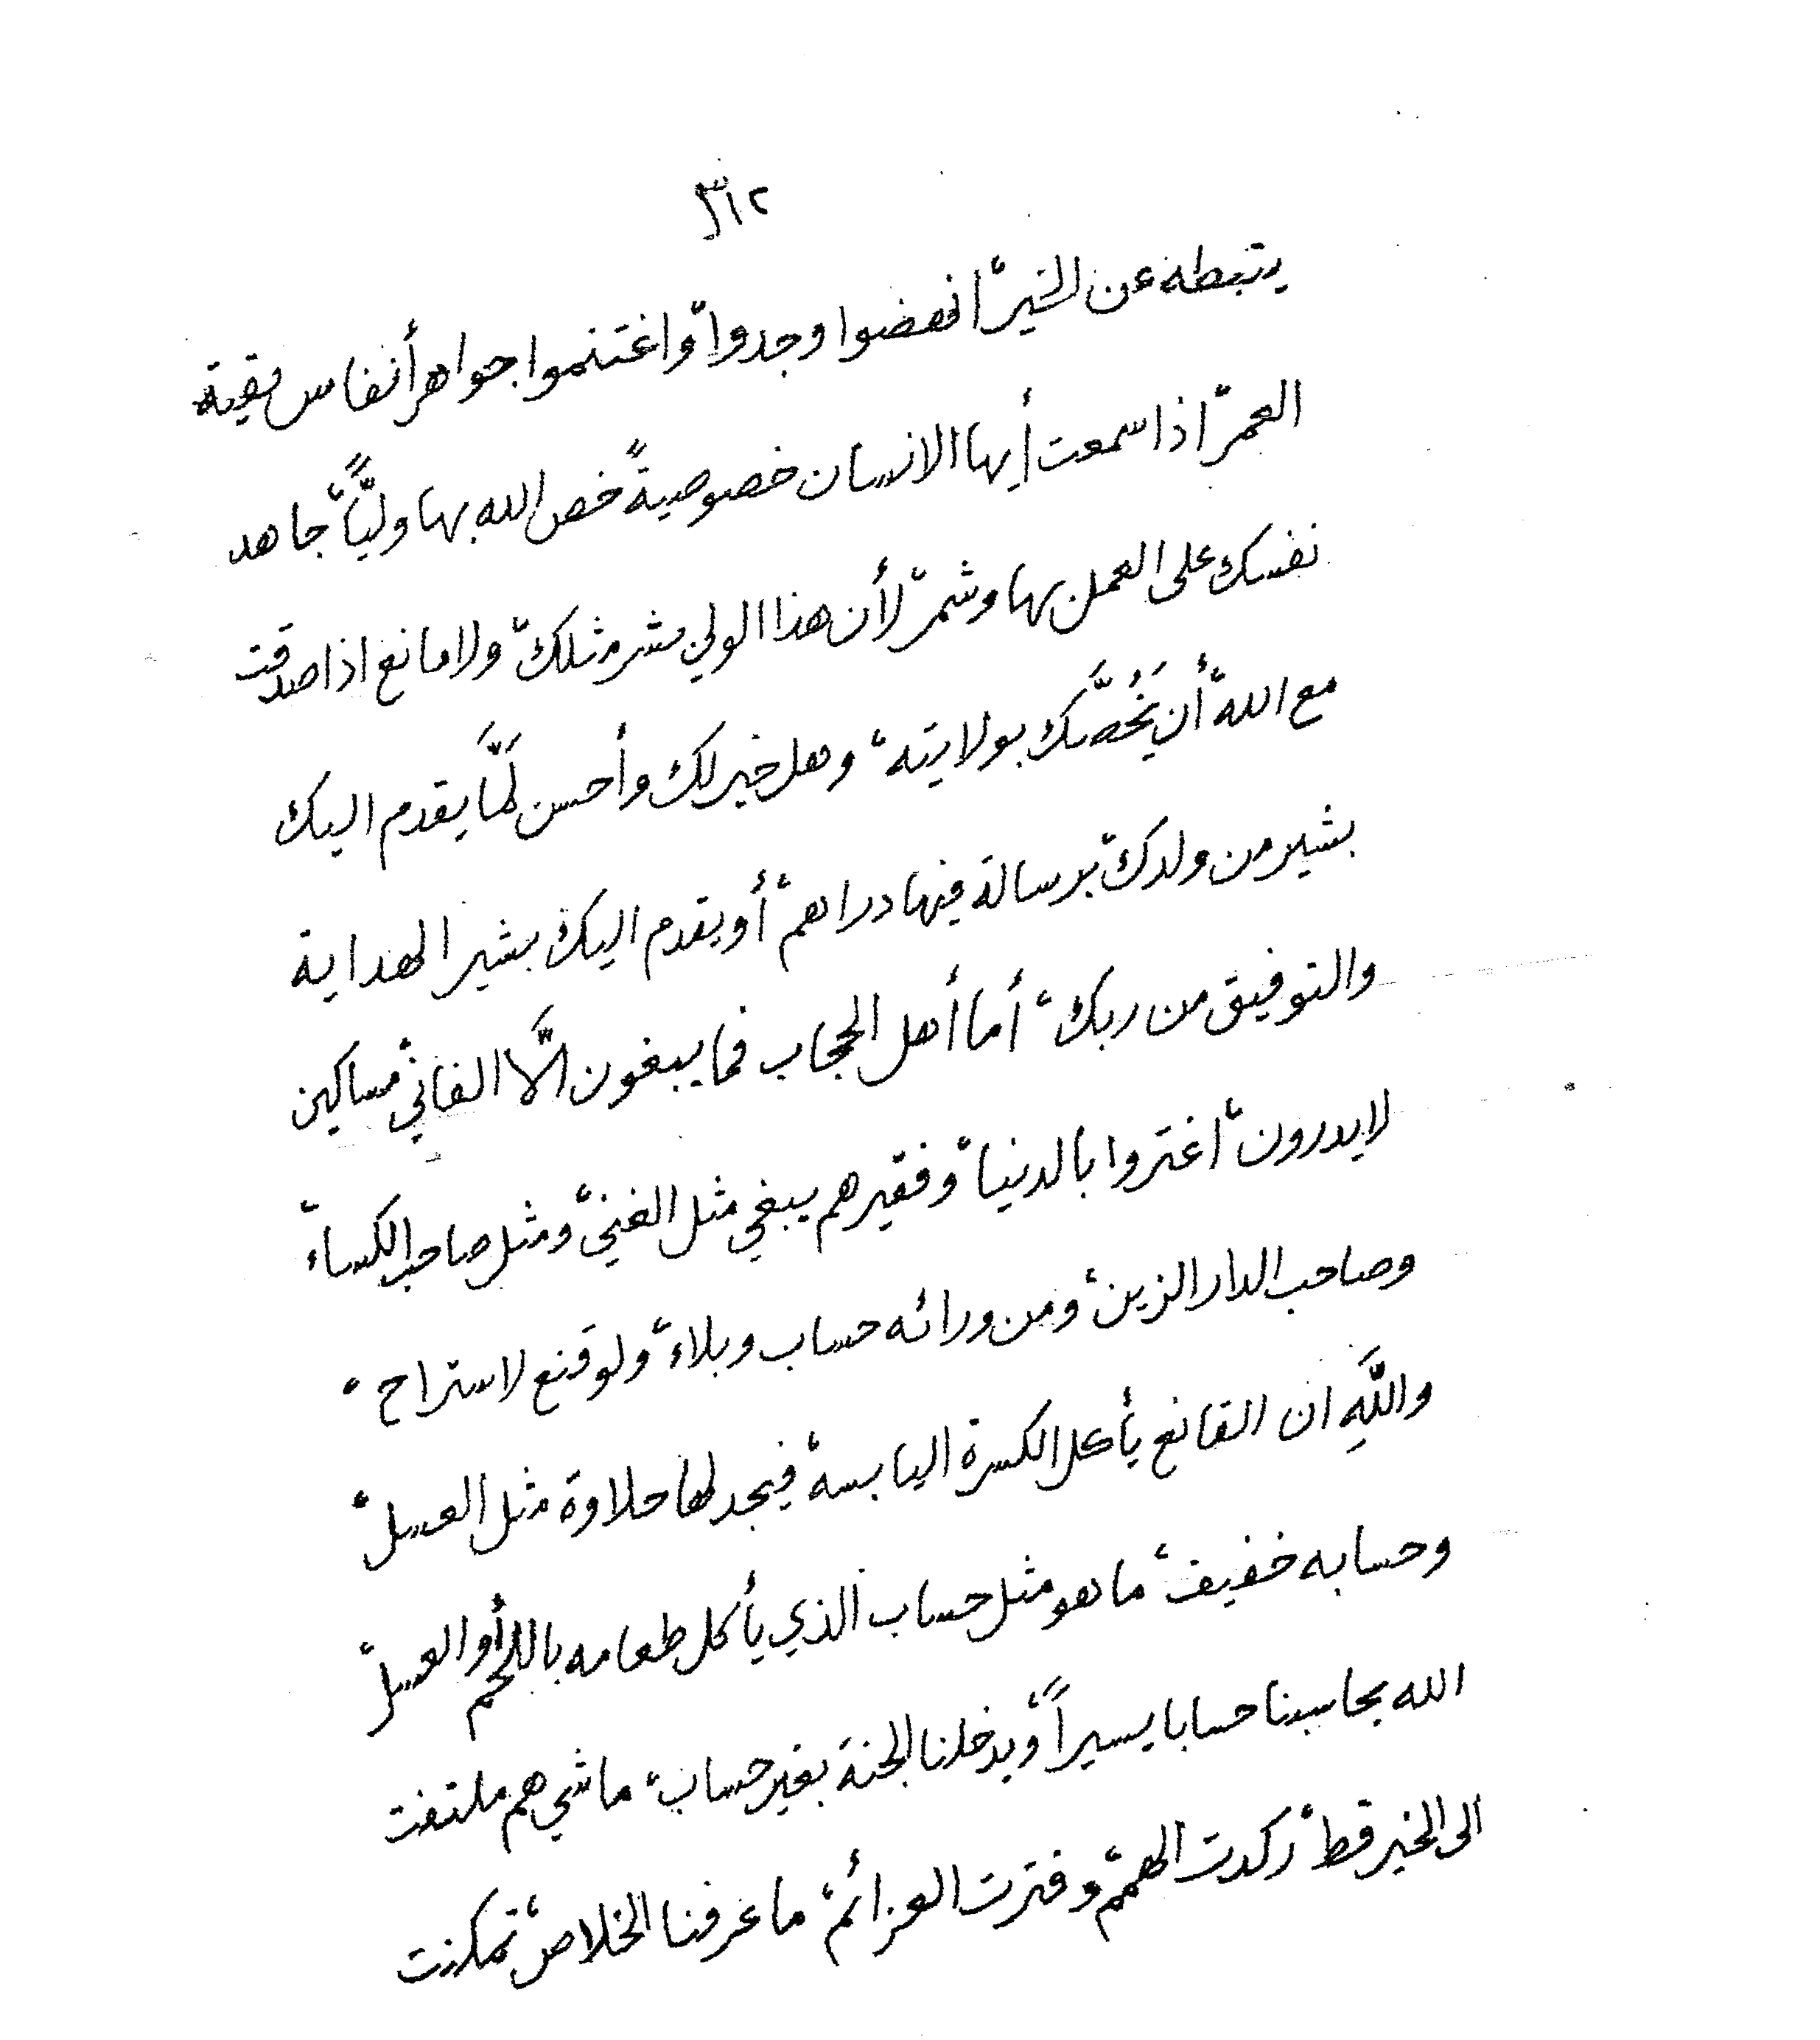 ٣١٢
يثبطه عن الخير، انهضوا وجدوا، واغتنموا جواهر أنفاس بقية
العمر، اذا سمعت أيها الانسان خصوصيةً خص الله بها وليًّا، جاهد
نفسك على العمل بها وشمر، لأن هذا الولي بشر مثلك، ولا مانع اذا صدقت
مع الله، أن يَخُصَّك بولايته، وهل خير لك وأحسن لَمَّا يقدم اليك
بشير من ولدك، برسالة فيها دراهم، أو يقدم اليك بشير الهداية
والتوفيق من ربك، أما أهل الحجاب فما يبغون الَّا الفاني، مساكين
لا يدرون، اغتروا بالدنيا، وفقيرهم يبغي مثل الغني، ومثل صاحب الكساء،
وصاحب الدار الزين، ومن ورائه حساب وبلاء، ولو قنع لاستراح،
واللَّهِ ان القانع يأكل الكسرة اليابسة، فيجد لها حلاوة مثل العسل،
وحسابه خفيف، ما هو مثل حساب الذي يأكل طعامه باللحم أو العسل،
الله يحاسبنا حسابا يسيراً، ويدخلنا الجنة بغير حساب، ماشي هم ملتفت
الى الخير قط، ركدت الهمم، وفترت العزائم، ما عرفنا الخلاص، تمكنت